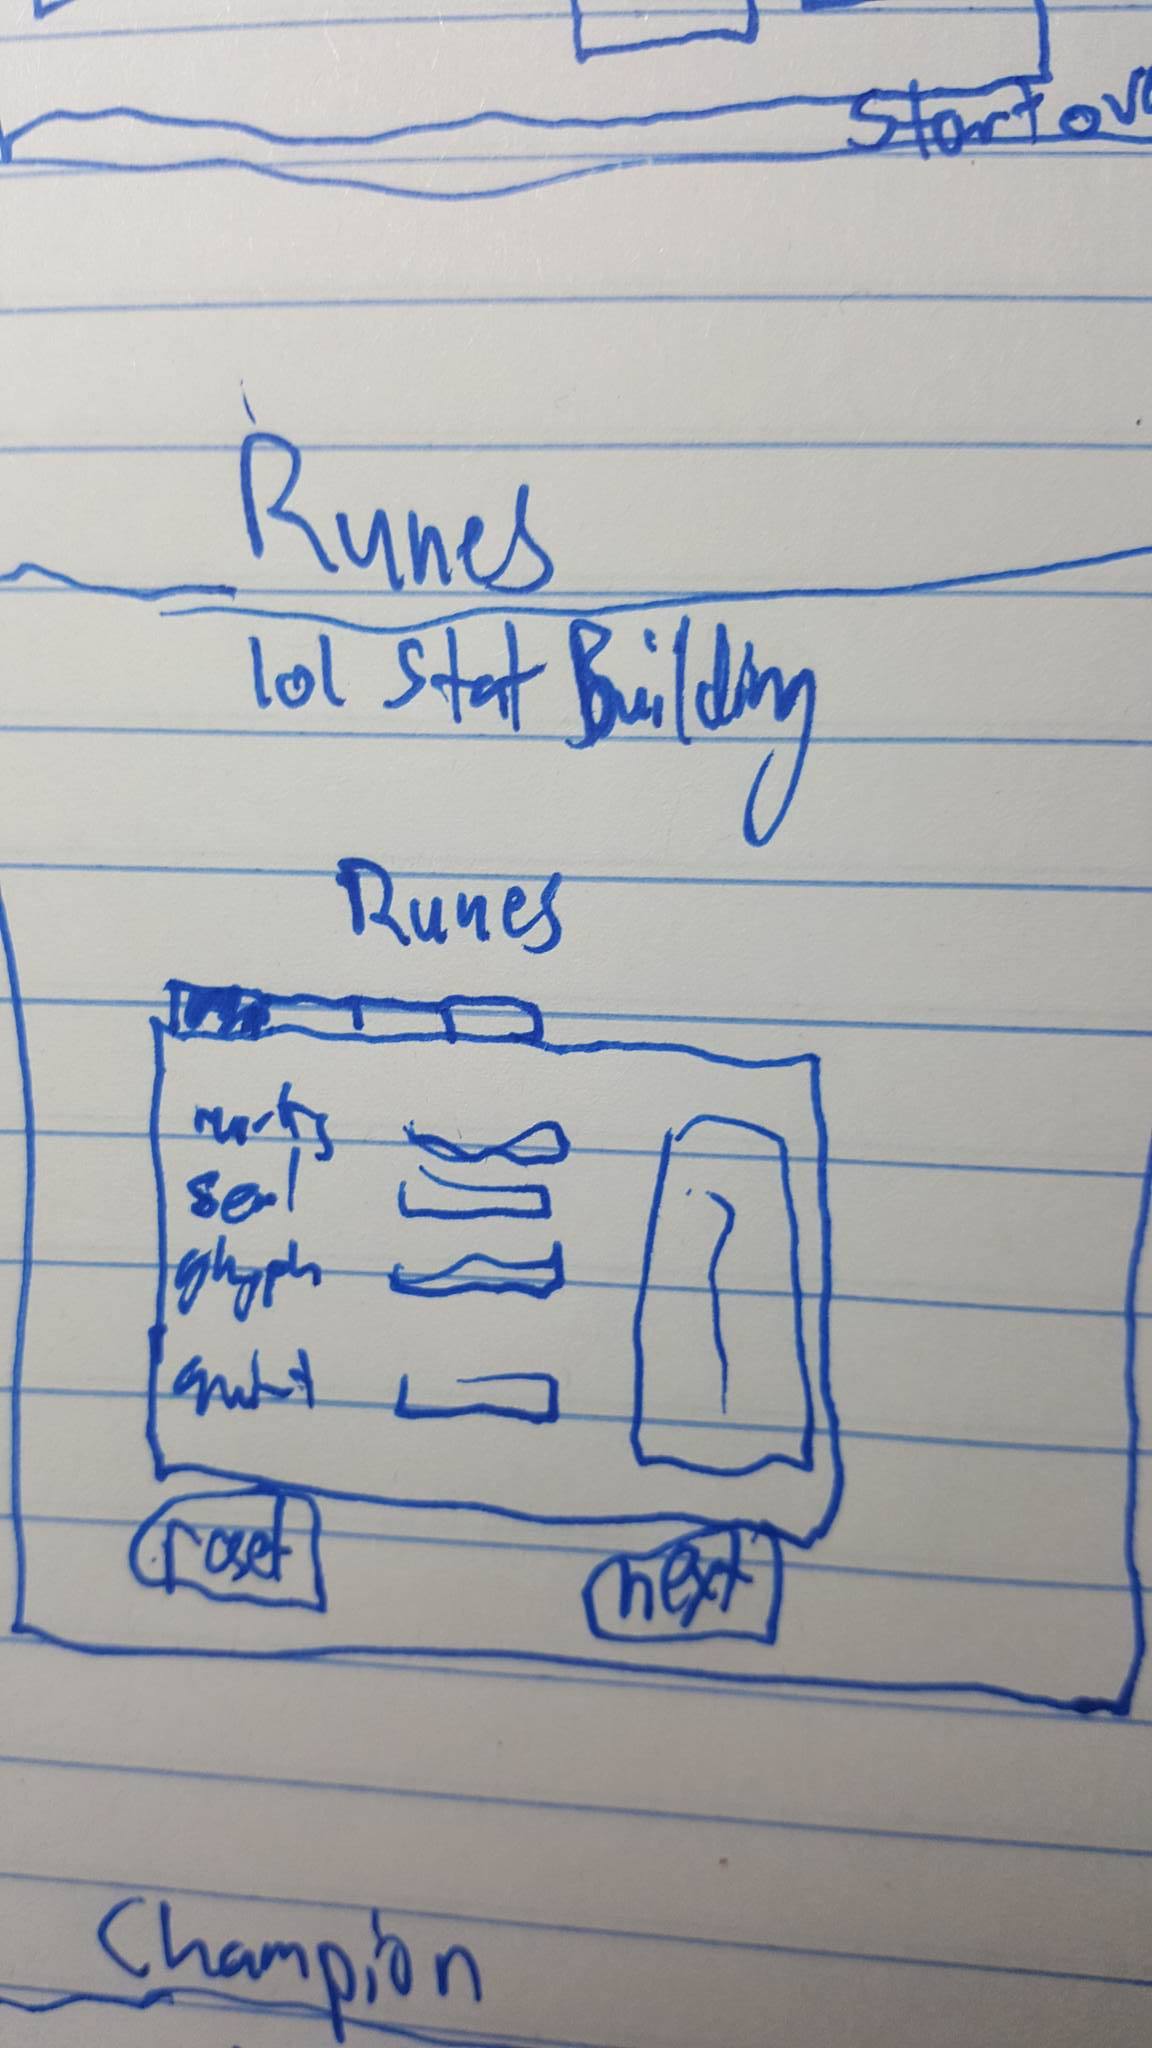 Start ov
Runes
lol Stat Building
Runes
marks
seal
glyph
quint
reset
next
Champion